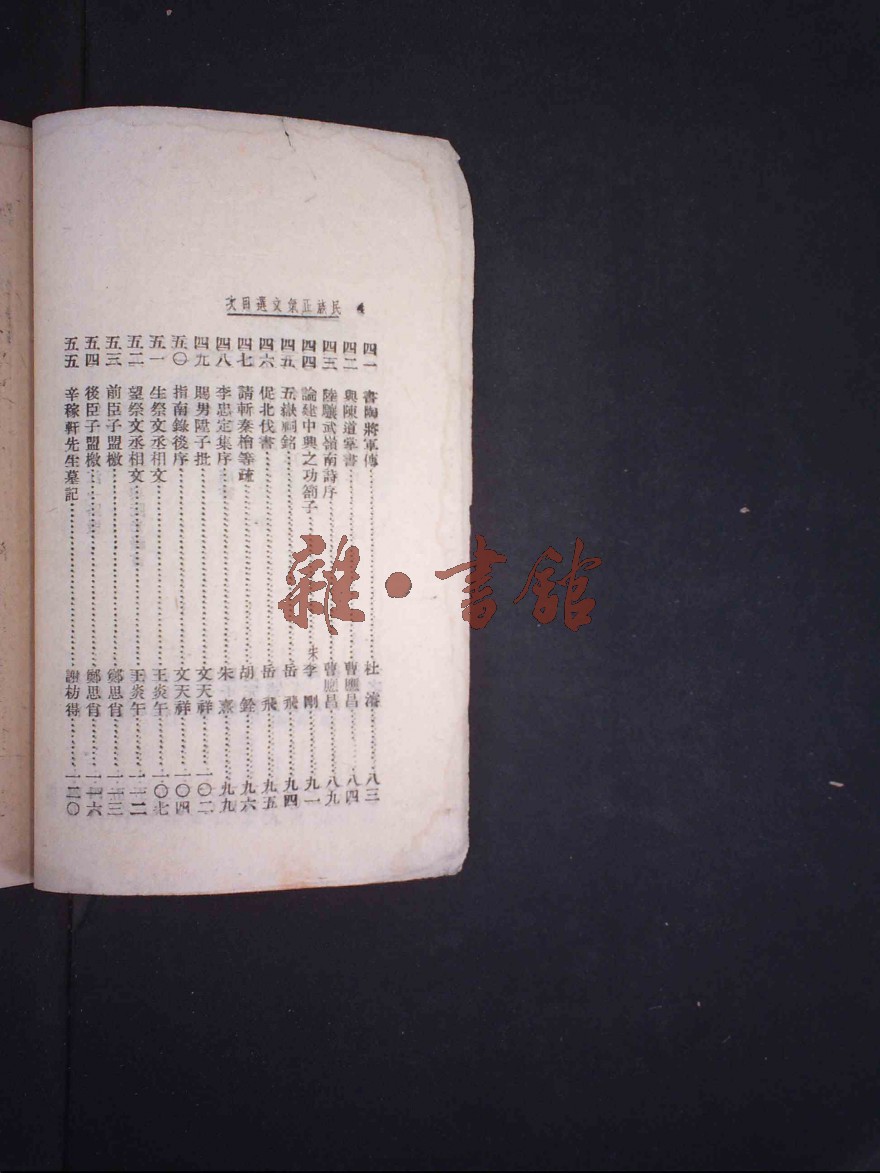 民族正氣文選目次 4
四一 書陶將軍傳 杜濬 八三
四二 與陳道掌書 曹應昌 八四
四三 陸驤武嶺南詩序 曹應昌 八九
四四 論建中興之功箚子 宋李剛 九一
四五 五嶽祠銘 岳飛 九四
四六 促北伐書 岳飛 九五
四七 請斬秦檜等疏 胡銓 九六
四八 李忠定集序 朱熹 九九
四九 賜男陞子批 文天祥 一〇二
五〇 指南錄後序 文天祥 一〇四
五一 生祭文丞相文 王炎午 一〇七
五二 望祭文丞相文 王炎午 一一二
五三 前臣子盟檄 鄭思肖 一一三
五四 後臣子盟檄 鄭思肖 一一六
五五 辛稼軒先生墓記 謝枋得 一二〇
雜·書館